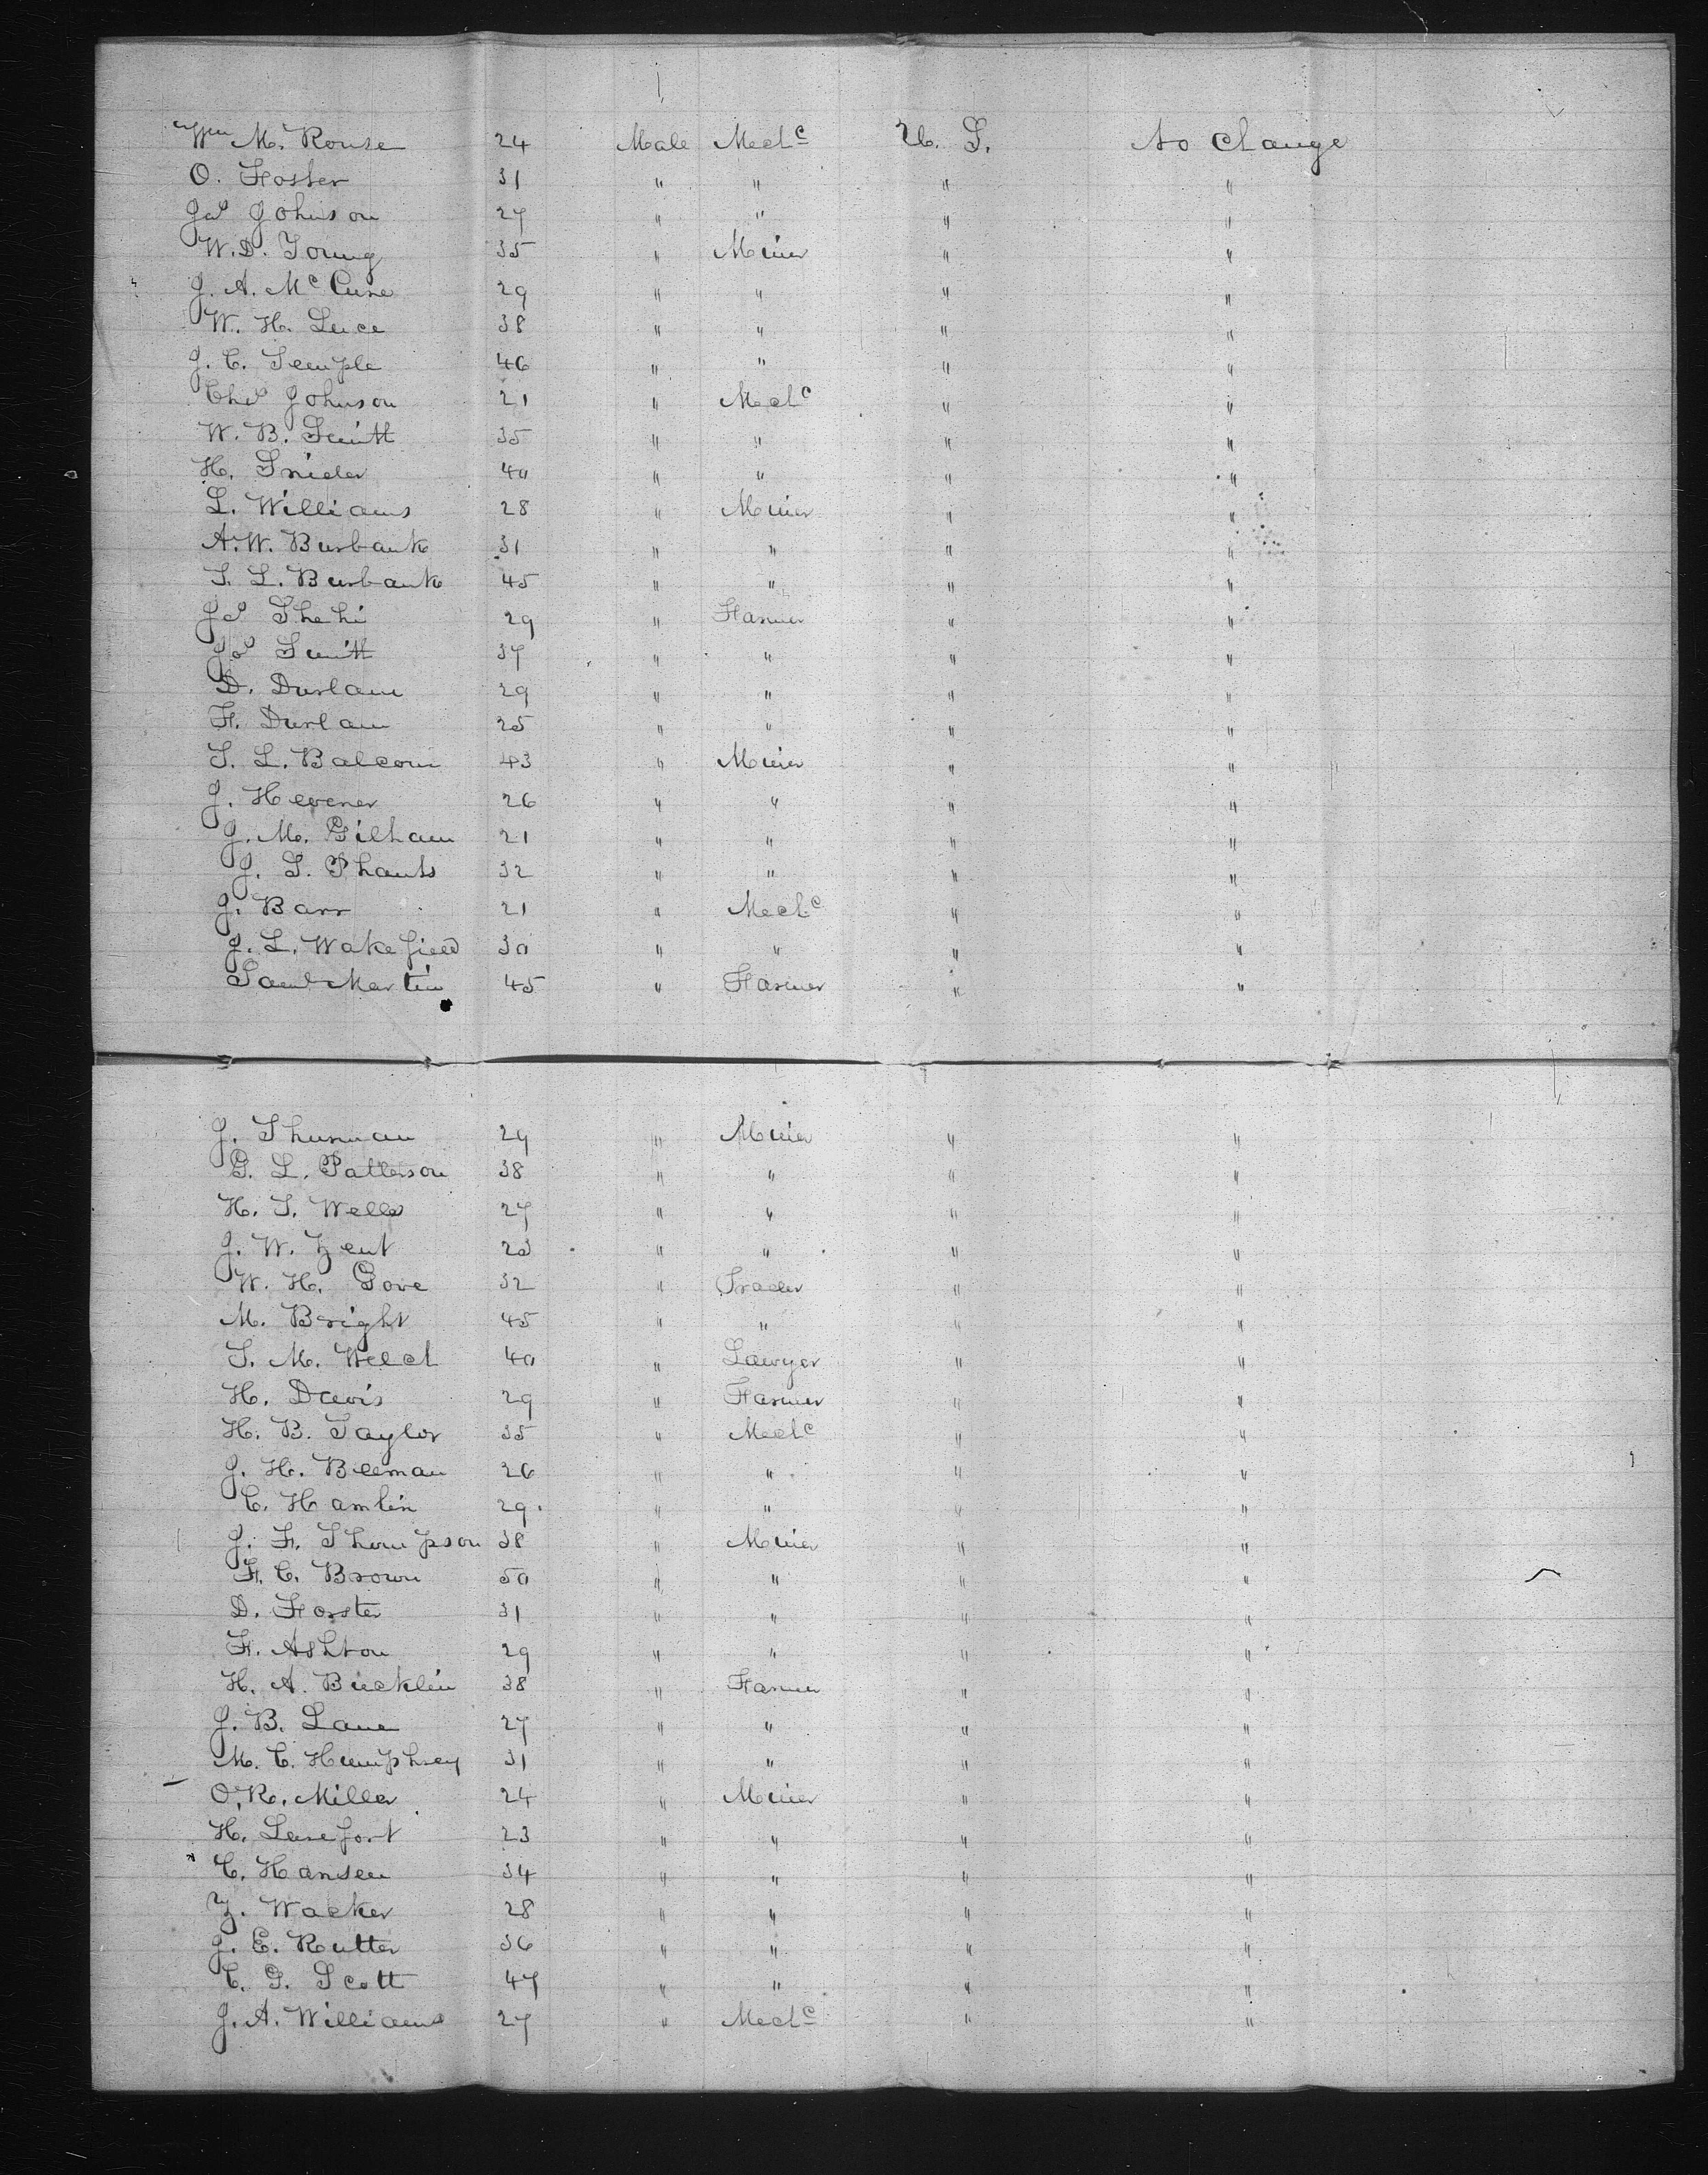 Wm M. Rouse 24 Male Mechc U. S. No Change
O. Foster 31 " " " "
Jas Johnson 27 " " " "
W. D. Young 35 " Miner " "
J. A. McCune 29 " " " "
W. H. Luce 38 " " " "
J. C. Temple 46 " " " "
Chas Johnson 21 " Mechc " "
W. B. Smith 35 " " " "
H. Snider 40 " " " "
L. Williams 28 " Miner " "
A. W. Burbank 31 " " " "
S. L. Burbank 45 " " " "
Jas Shehi 29 " Farmer " "
Jos Smith 37 " " " "
D. Durlam 29 " " " "
F. Durlam 25 " " " "
S. L. Balcom 43 " Miner " "
J. Hevener 26 " " " "
J. M. Gilham 21 " " " "
J. S. Phants 32 " " " "
J. Barr 21 " Mechc " "
J. L. Wakefield 30 " " " "
Saml Martin 45 " Farmer " "
J. Thurman 29 " Miner " "
G. L. Patterson 38 " " " "
H. T. Wells 27 " " " "
J. W. Zent " " " "
W. H. Gove 32 " Trader " "
M. Bright 45 " " " "
T. M. Welch 40 " Lawyer " "
H. Davis 29 " Farmer " "
H. B. Taylor 35 " Mechc " "
J. H. Beeman 26 " " " "
C. Hamlin 29 " " " "
J. F. Thompson 38 " Miner " "
F. C. Brown 50 " " " "
D. Forster 31 " " " "
F. Ashton 29 " " " "
H. A. Bucklin 38 " Farmer " "
J. B. Lane 27 " " " "
M. C. Humphrey 31 " " " "
O. R. Miller 24 " Miner " "
H. 23 " " " "
C. Hansen 34 " " " "
Z. Wacker 28 " " " "
J. E. Rutter 36 " " " "
C. G. Scott 47 " " " "
J. A. Williams 27 " Mechc " "